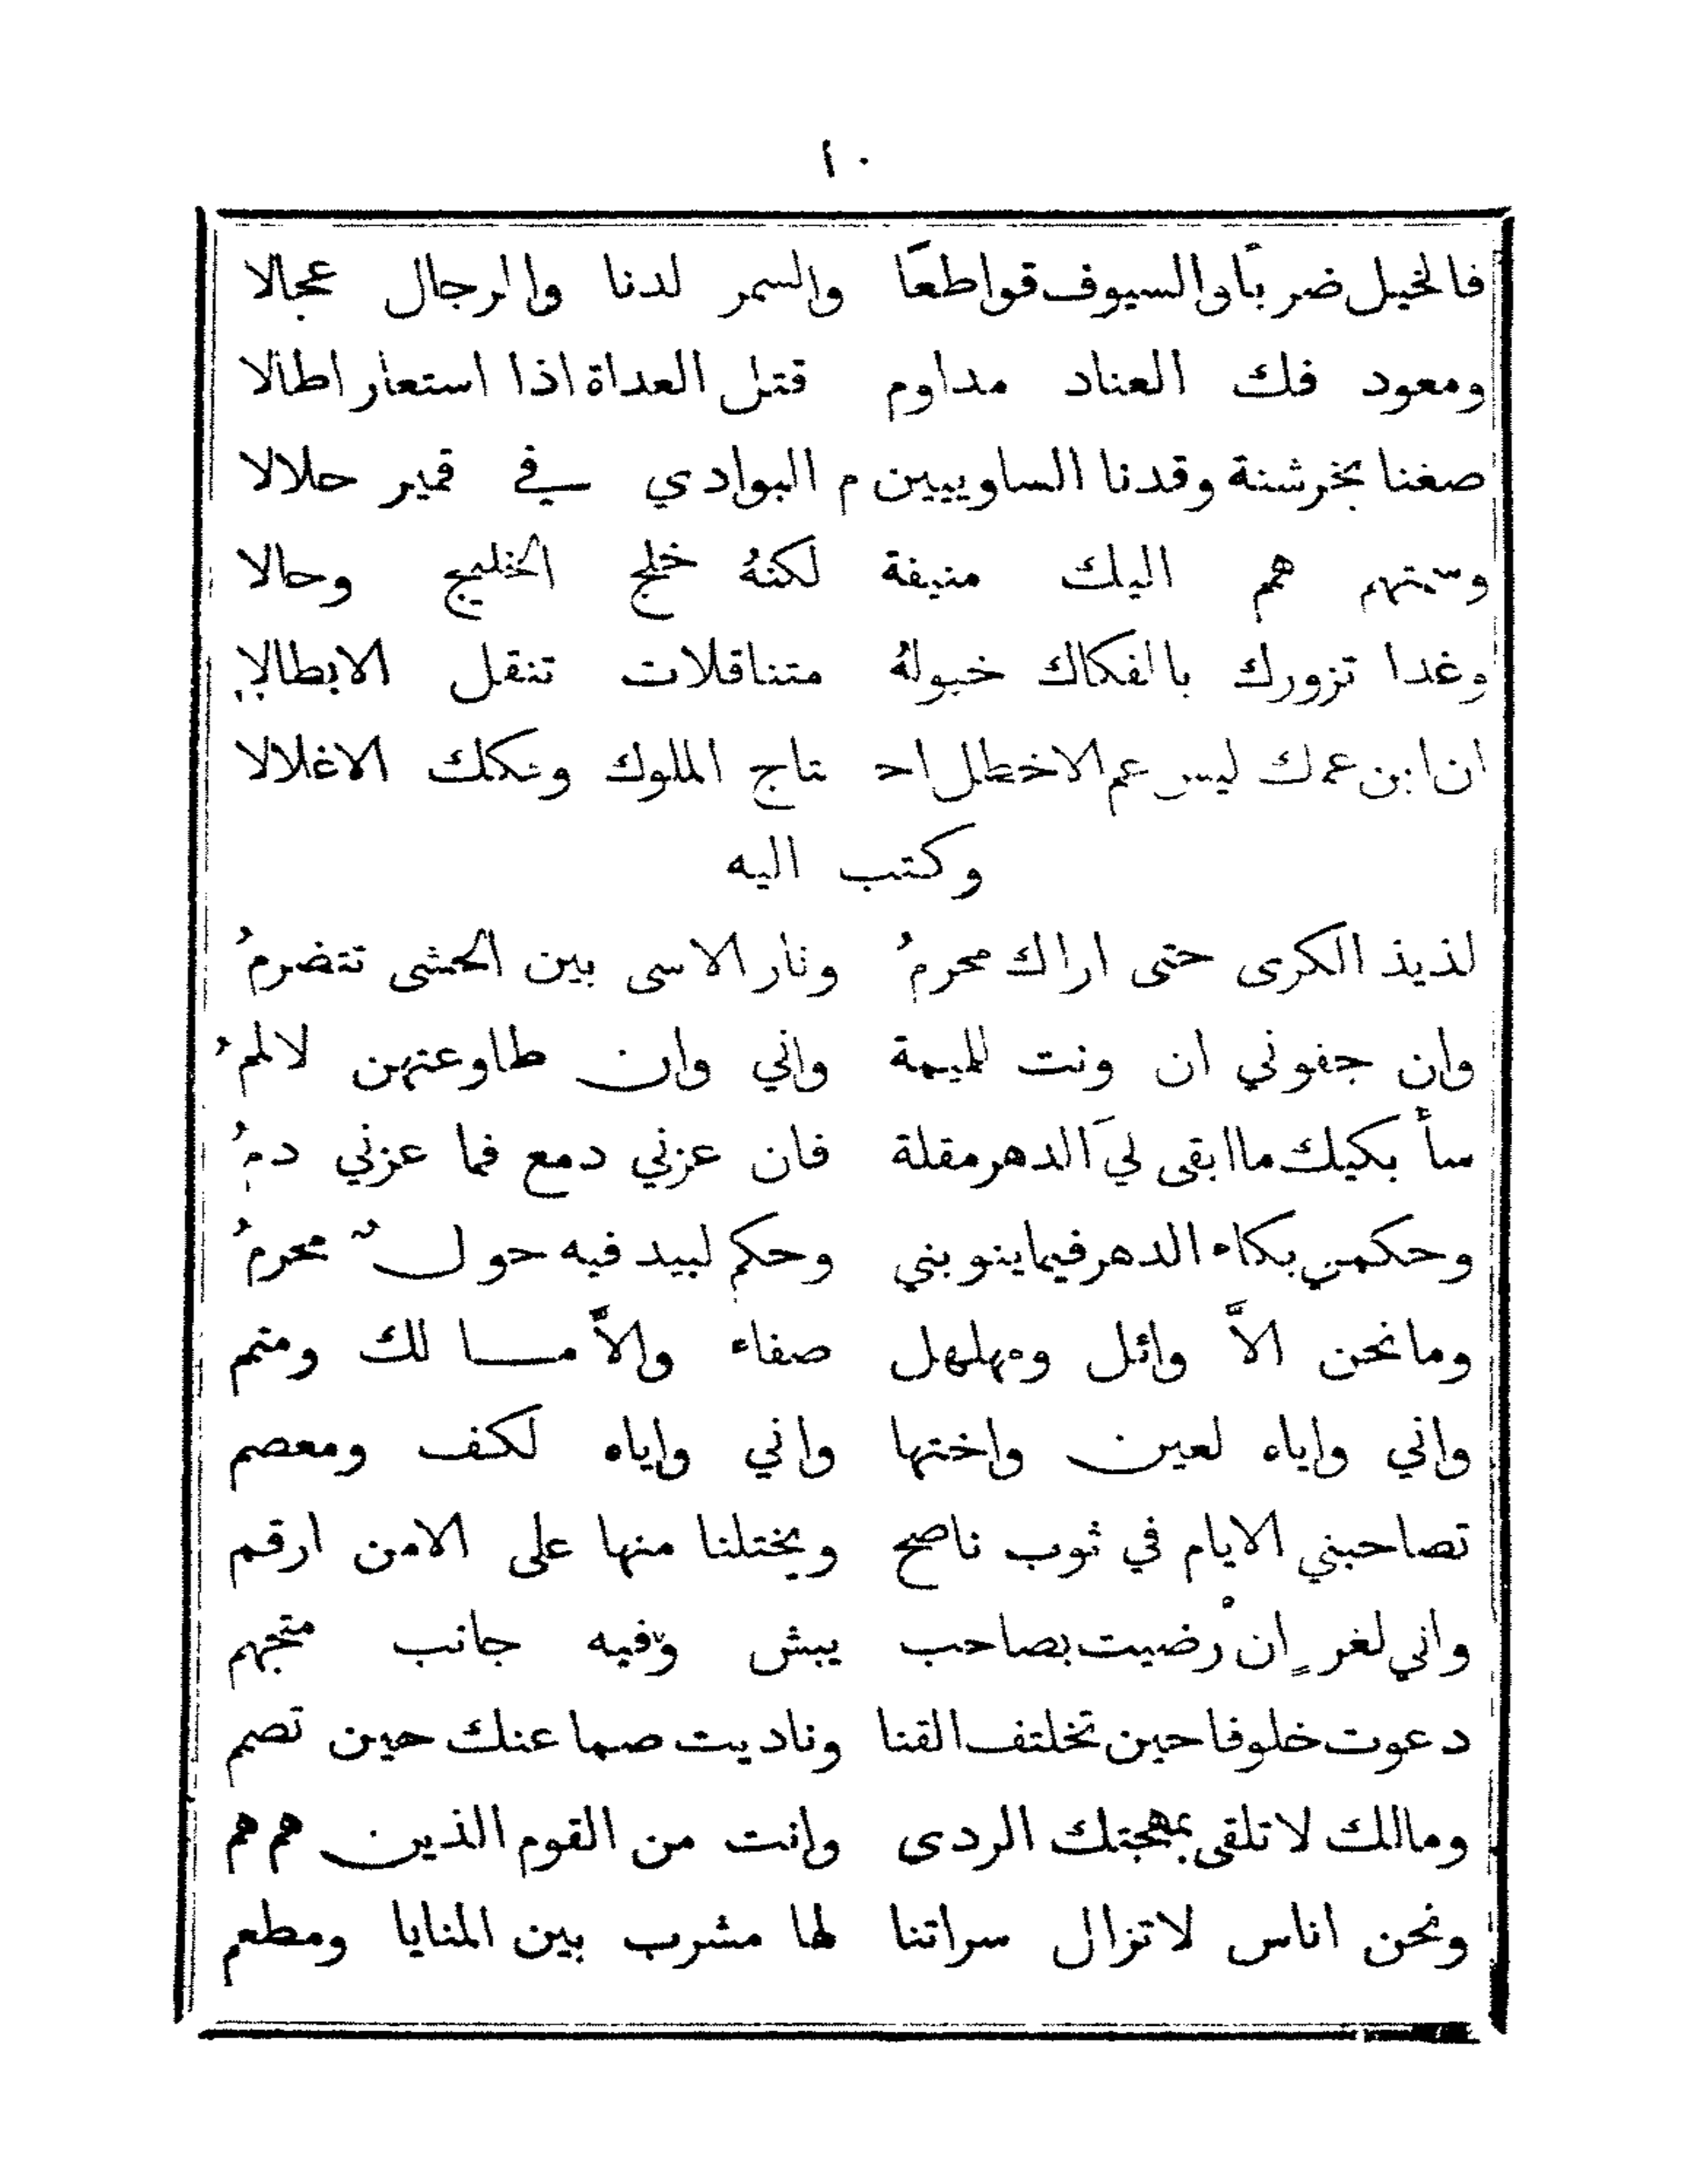 ١٠
فالخيل ضربًا والسيوف قواطعًا والسمر لدنا والرجال عجالا
ومعود فك العناد مداوم قتل العداة اذا استعار اطالا
صغنا بخرشنة وقدنا الساوييين م البوادي في قمير حلالا
وسمتهم همم اليك منيفة لكنهُ خلج الخليج وحالا
وغدا تزورك بالفكاك خيولهُ متناقلات تنقل الابطالا
ان ابن عمك ليس عم الاخطل احـ ـتاج الملوك وفكك الاغلالا
وكتب اليه
لذيذ الكرى حتى اراك محرمُ ونار الاسى بين الحشى تتضرمُ
وان جفوني ان ونت للميمة واني وان طاوعتهن لالمُ
سأبكيك ما ابقى ليَ الدهر مقلة فان عزني دمع فما عزني دمُ
وحكمي بكاء الدهر فيما ينوبني وحكم لبيد فيه حولٌ محرمُ
وما نحن الاَّ وائل ومهلهل صفاء والاَّ مالك ومتمم
واني واياه لعين واختها واني واياه لكف ومعصم
تصاحبني الايام في ثوب ناصح ويختلنا منها على الامن ارقم
واني لغرٍ انْ رضيت بصاحب يبش وفيه جانب متجهم
دعوت خلوفا حين تختلف القنا وناديت صما عنك حين تصمم
ومالك لا تلقى بمهجتك الردى وانت من القوم الذين هم هم
ونحن اناس لا تزال سراتنا لها مشرب بين المنايا ومطعم